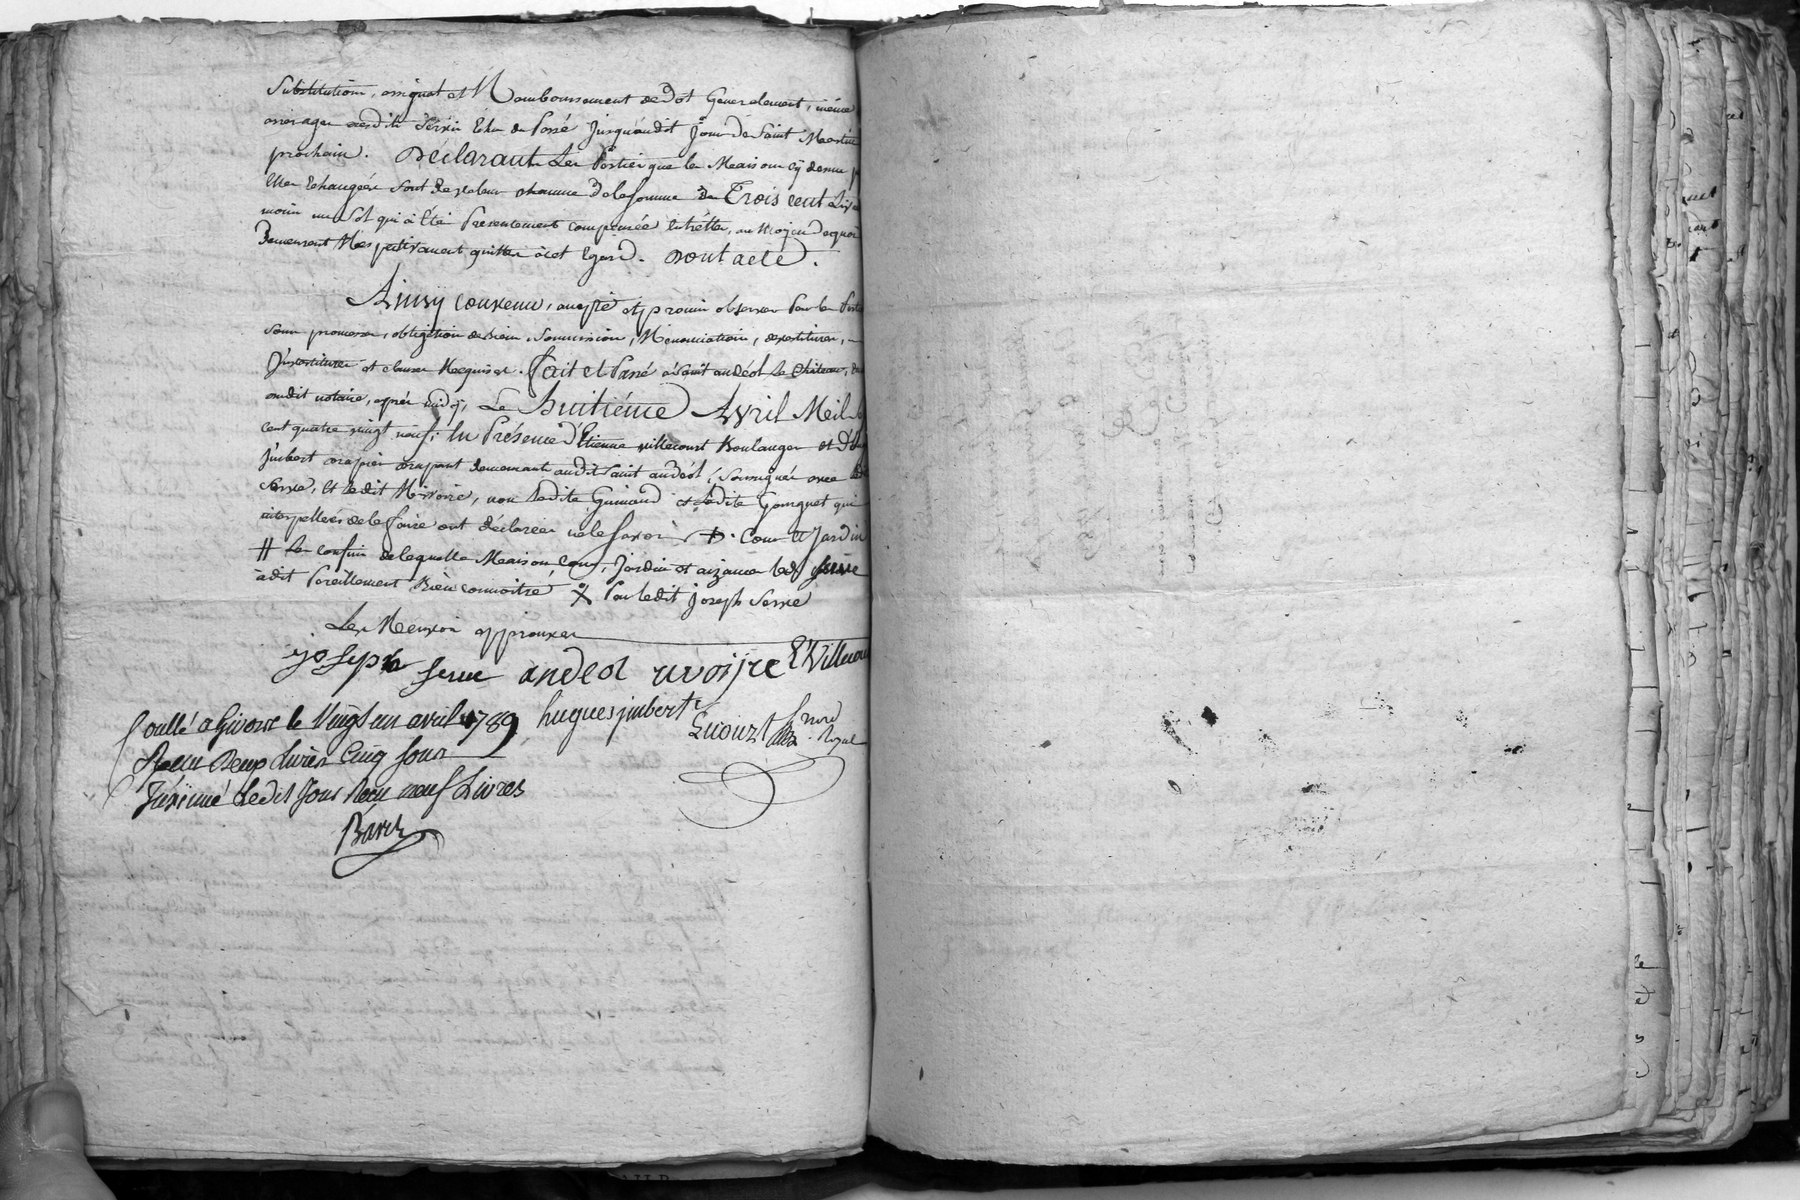 Substitution, assignat et Remboursement de Dot Generalement, même
arrerages desdits Servis Echu du Passé Jusqu'audit Jour de Saint Martin
prochain. Déclarant Les Parties que les Maisons cy dessus
Elles Echangées sont de valeur chacune de la somme de Trois cent Livres
moin un Sol qui à Eté Presentement compensée Entr'elles, au moyen de quoi
Demeurent Respectivement quittes à cet Egard. Dont acte.
Ainsy convenu, accepté et promis observer Par les Parties
sous promesses, obligation de biens, Soumission, Renonciation, devestitures,
Investitures et clauses Requises. Fait et Passé à Saint andéol le Château,
dudit notaire, après midy, Le huitiéme Avril Mil
cent quatre vingt neuf, En Présence d'Etienne villecourt Boulanger et d'
Jmbert demeurants audit saint andéol, Soussignés avec
Serve, Et ledit Rivoire, non ladite Guinand et Ladite Gourguet qui
interpellées de le faire ont déclarées ne le savoir + Cour et Jardin
# Les confins de laquelle Maison, Cour, Jardin et aizances led. Serve
à dit Pareillement Bien connoitre X Par ledit joseph Serve
Les Renvois approuvés
joseph serve andeol rivoijre E Villecour
hugues jmbert
Contollé a Givors le Vingt un avril 1789
Reçu Deux Livres Cinq sous
Jnsinué Ledit Jour Reçu neuf Livres